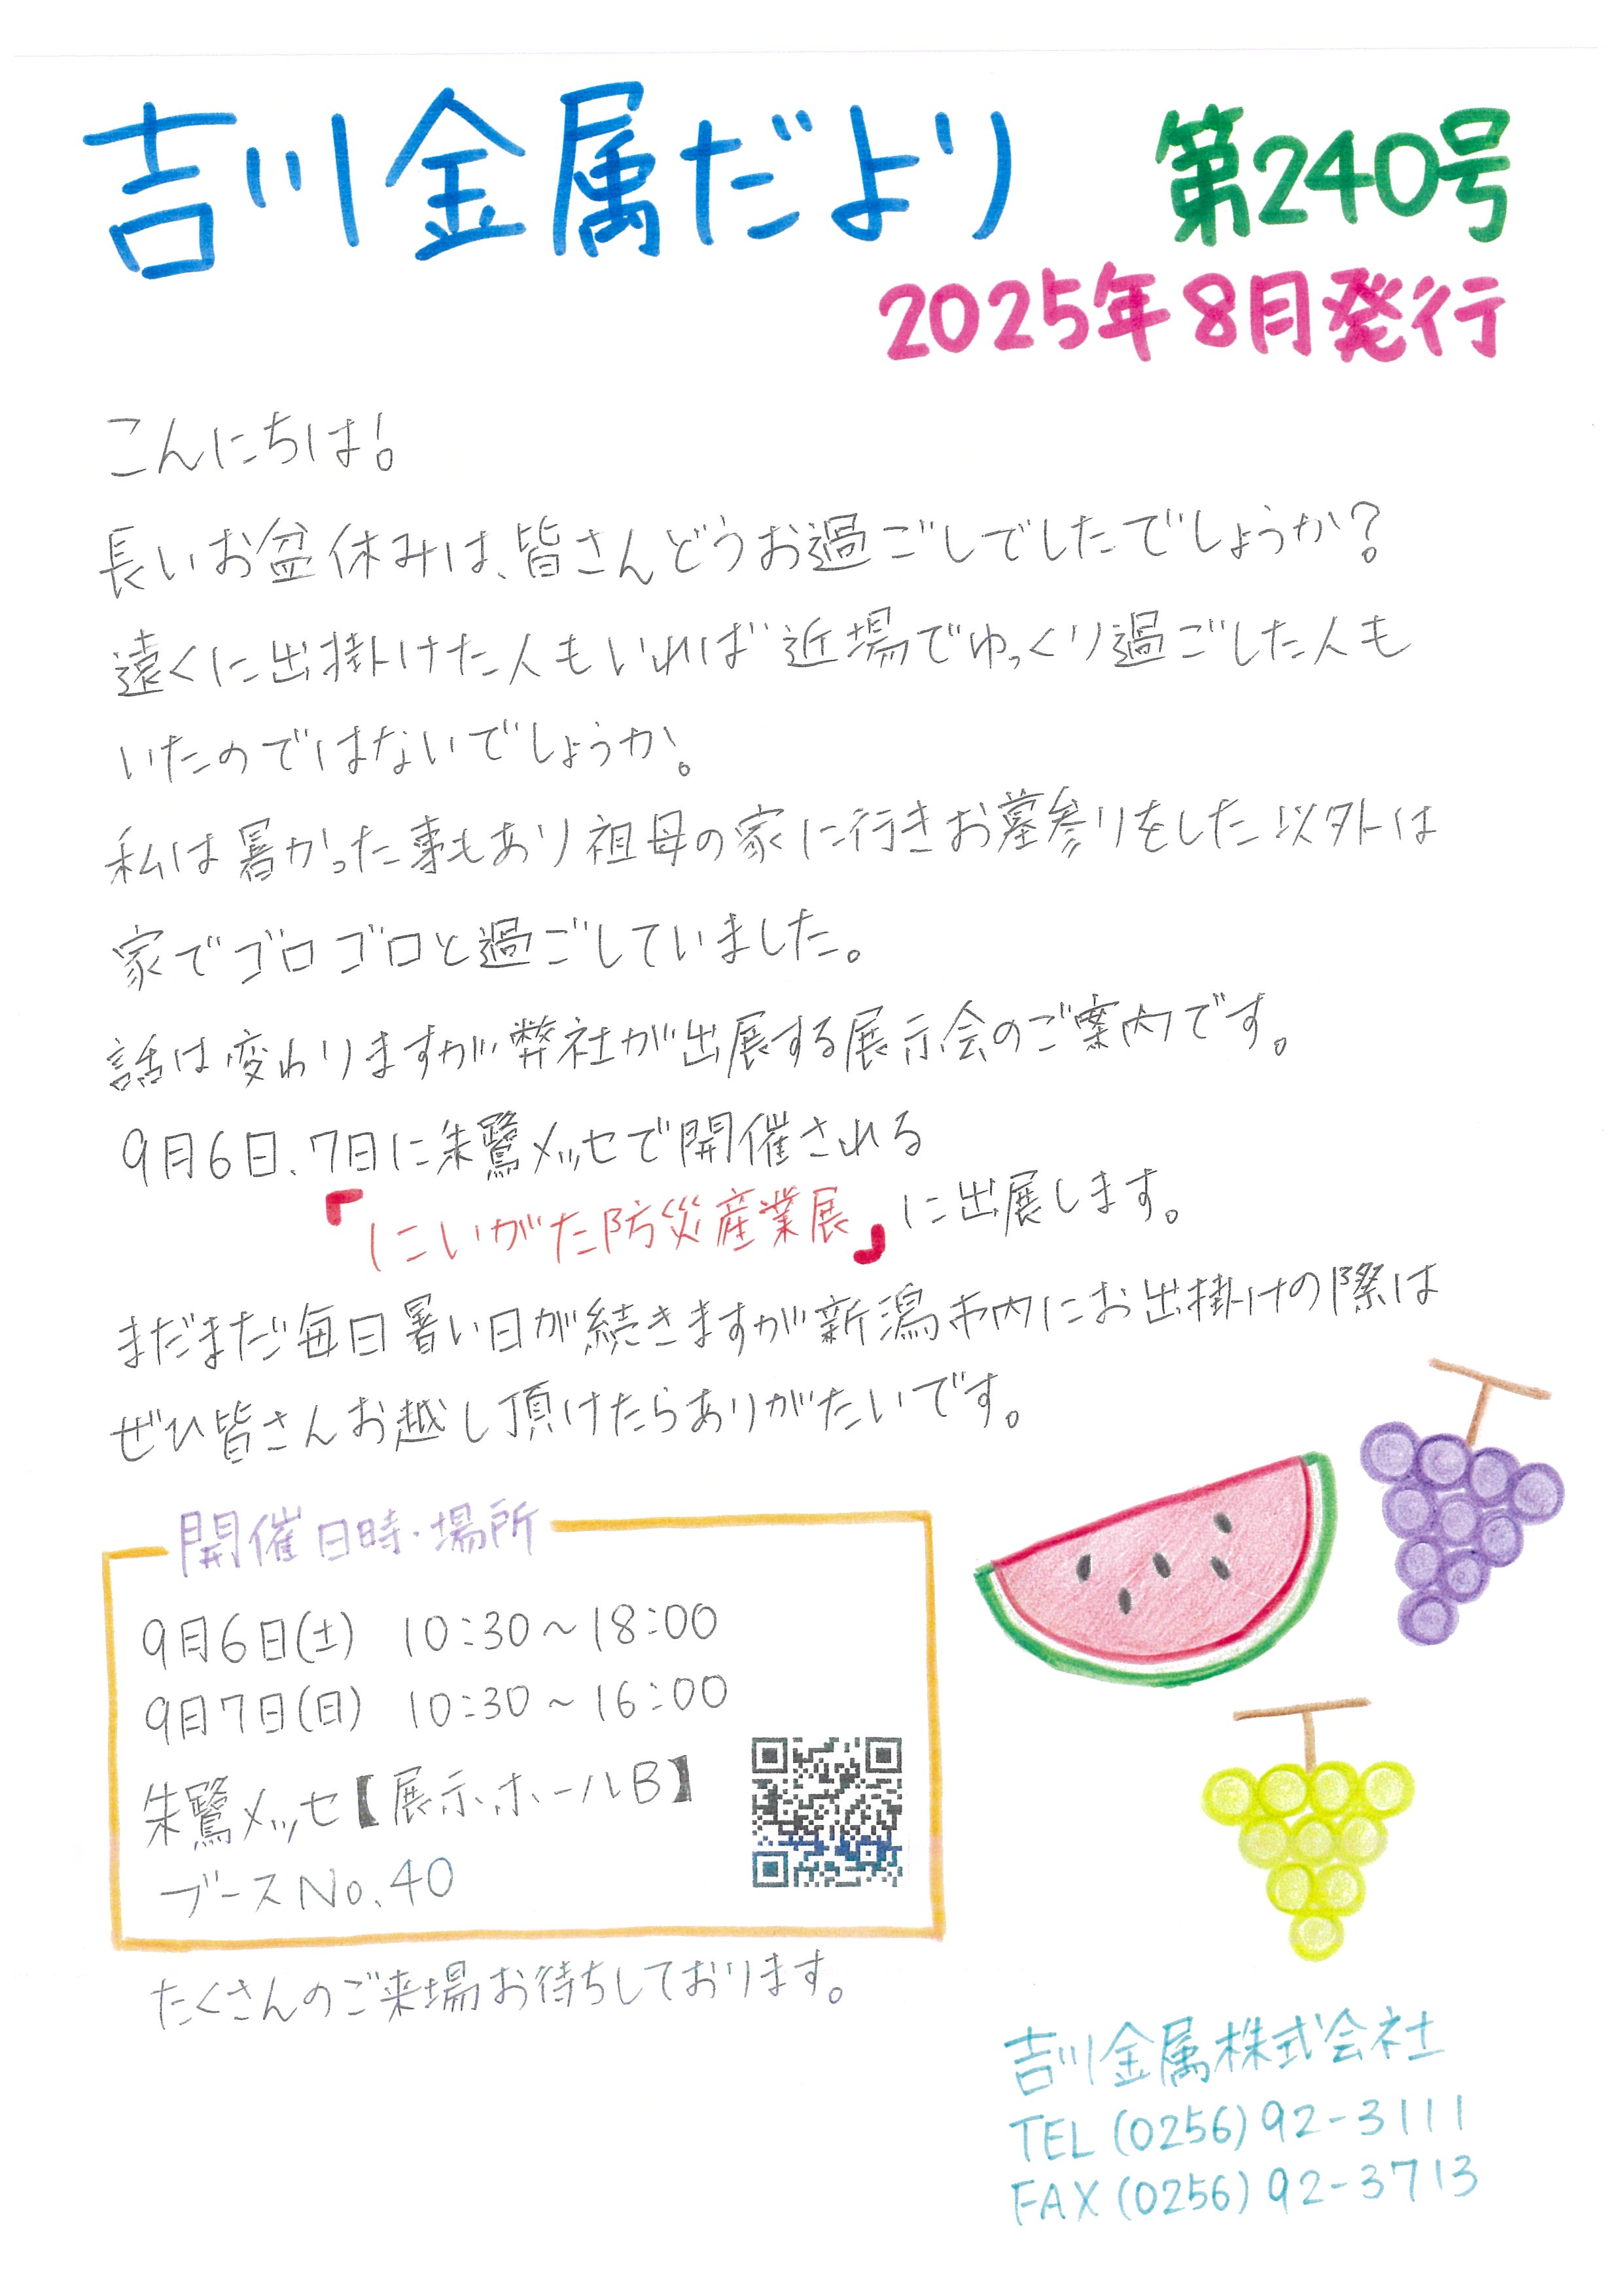 吉川金属だより 第240号
2025年8月発行
こんにちは!
長いお盆休みは、皆さんどうお過ごしでしたでしょうか?
遠くに出掛けた人もいれば近場でゆっくり過ごした人も
いたのではないでしょうか。
私は暑かった事もあり祖母の家に行きお墓参りをした以外は
家でゴロゴロと過ごしていました。
話は変わりますが弊社が出展する展示会のご案内です。
9月6日、7日に朱鷺メッセで開催される
『にいがた防災産業展』に出展します。
まだまだ毎日暑い日が続きますが新潟市内にお出掛けの際は
ぜひ皆さんお越し頂けたらありがたいです。
開催日時・場所
9月6日(土) 10:30~18:00
9月7日(日) 10:30~16:00
朱鷺メッセ【展示ホールB】
ブースNo.40
たくさんのご来場お待ちしております。
吉川金属株式会社
TEL (0256) 92-3111
FAX (0256) 92-3713